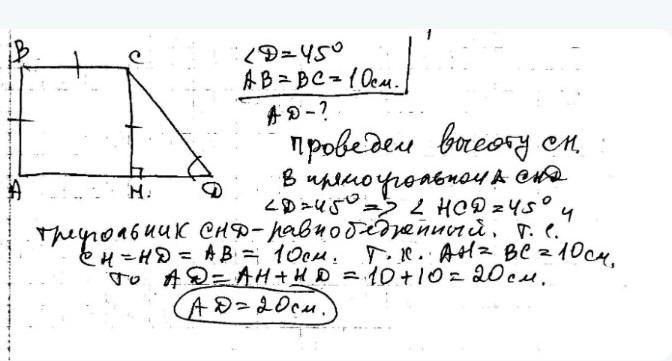 B C
A H. D
∠D=45°
AB=BC=10см.
AD-?
Проведем высоту CH.
В прямоугольном Δ CHD
∠D=45° => ∠HCD=45° и
треугольник CHD-равнобедренный. Т.е.
CH=HD=AB=10см. Т.к. AH=BC=10см,
то AD=AH+HD=10+10=20см.
AD=20см.